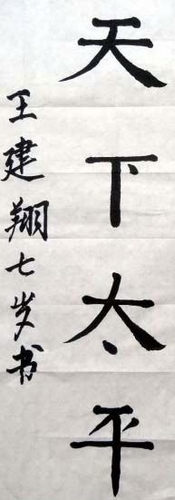 天下太平
王建翔七岁书